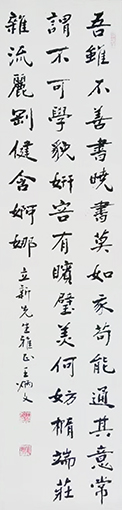 吾雖不善書曉書莫如我苟能通其意常
謂不可學貌妍容有矉璧美何妨橢端莊
雜流麗剛健含婀娜
立新先生雅正 王炳文